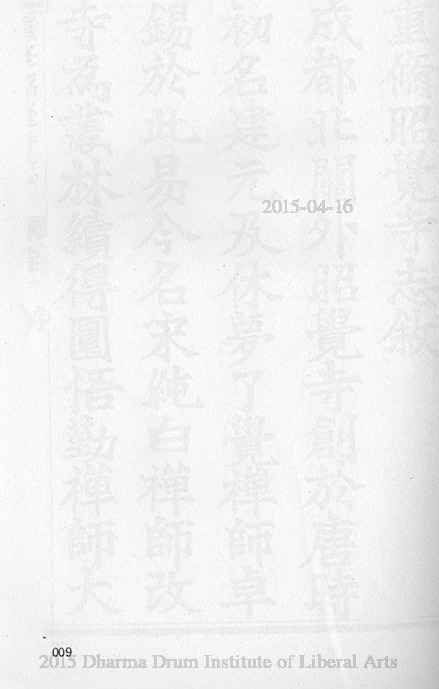 重脩昭覺寺志敘
成都北關外昭覺寺創於唐時
初名建元及休夢了覺禪師卓
錫於此易今名宋純白禪師改
寺為叢林續得圜悟勤禪師大
2015-04-16
009
2015 Dharma Drum Institute of Liberal Arts